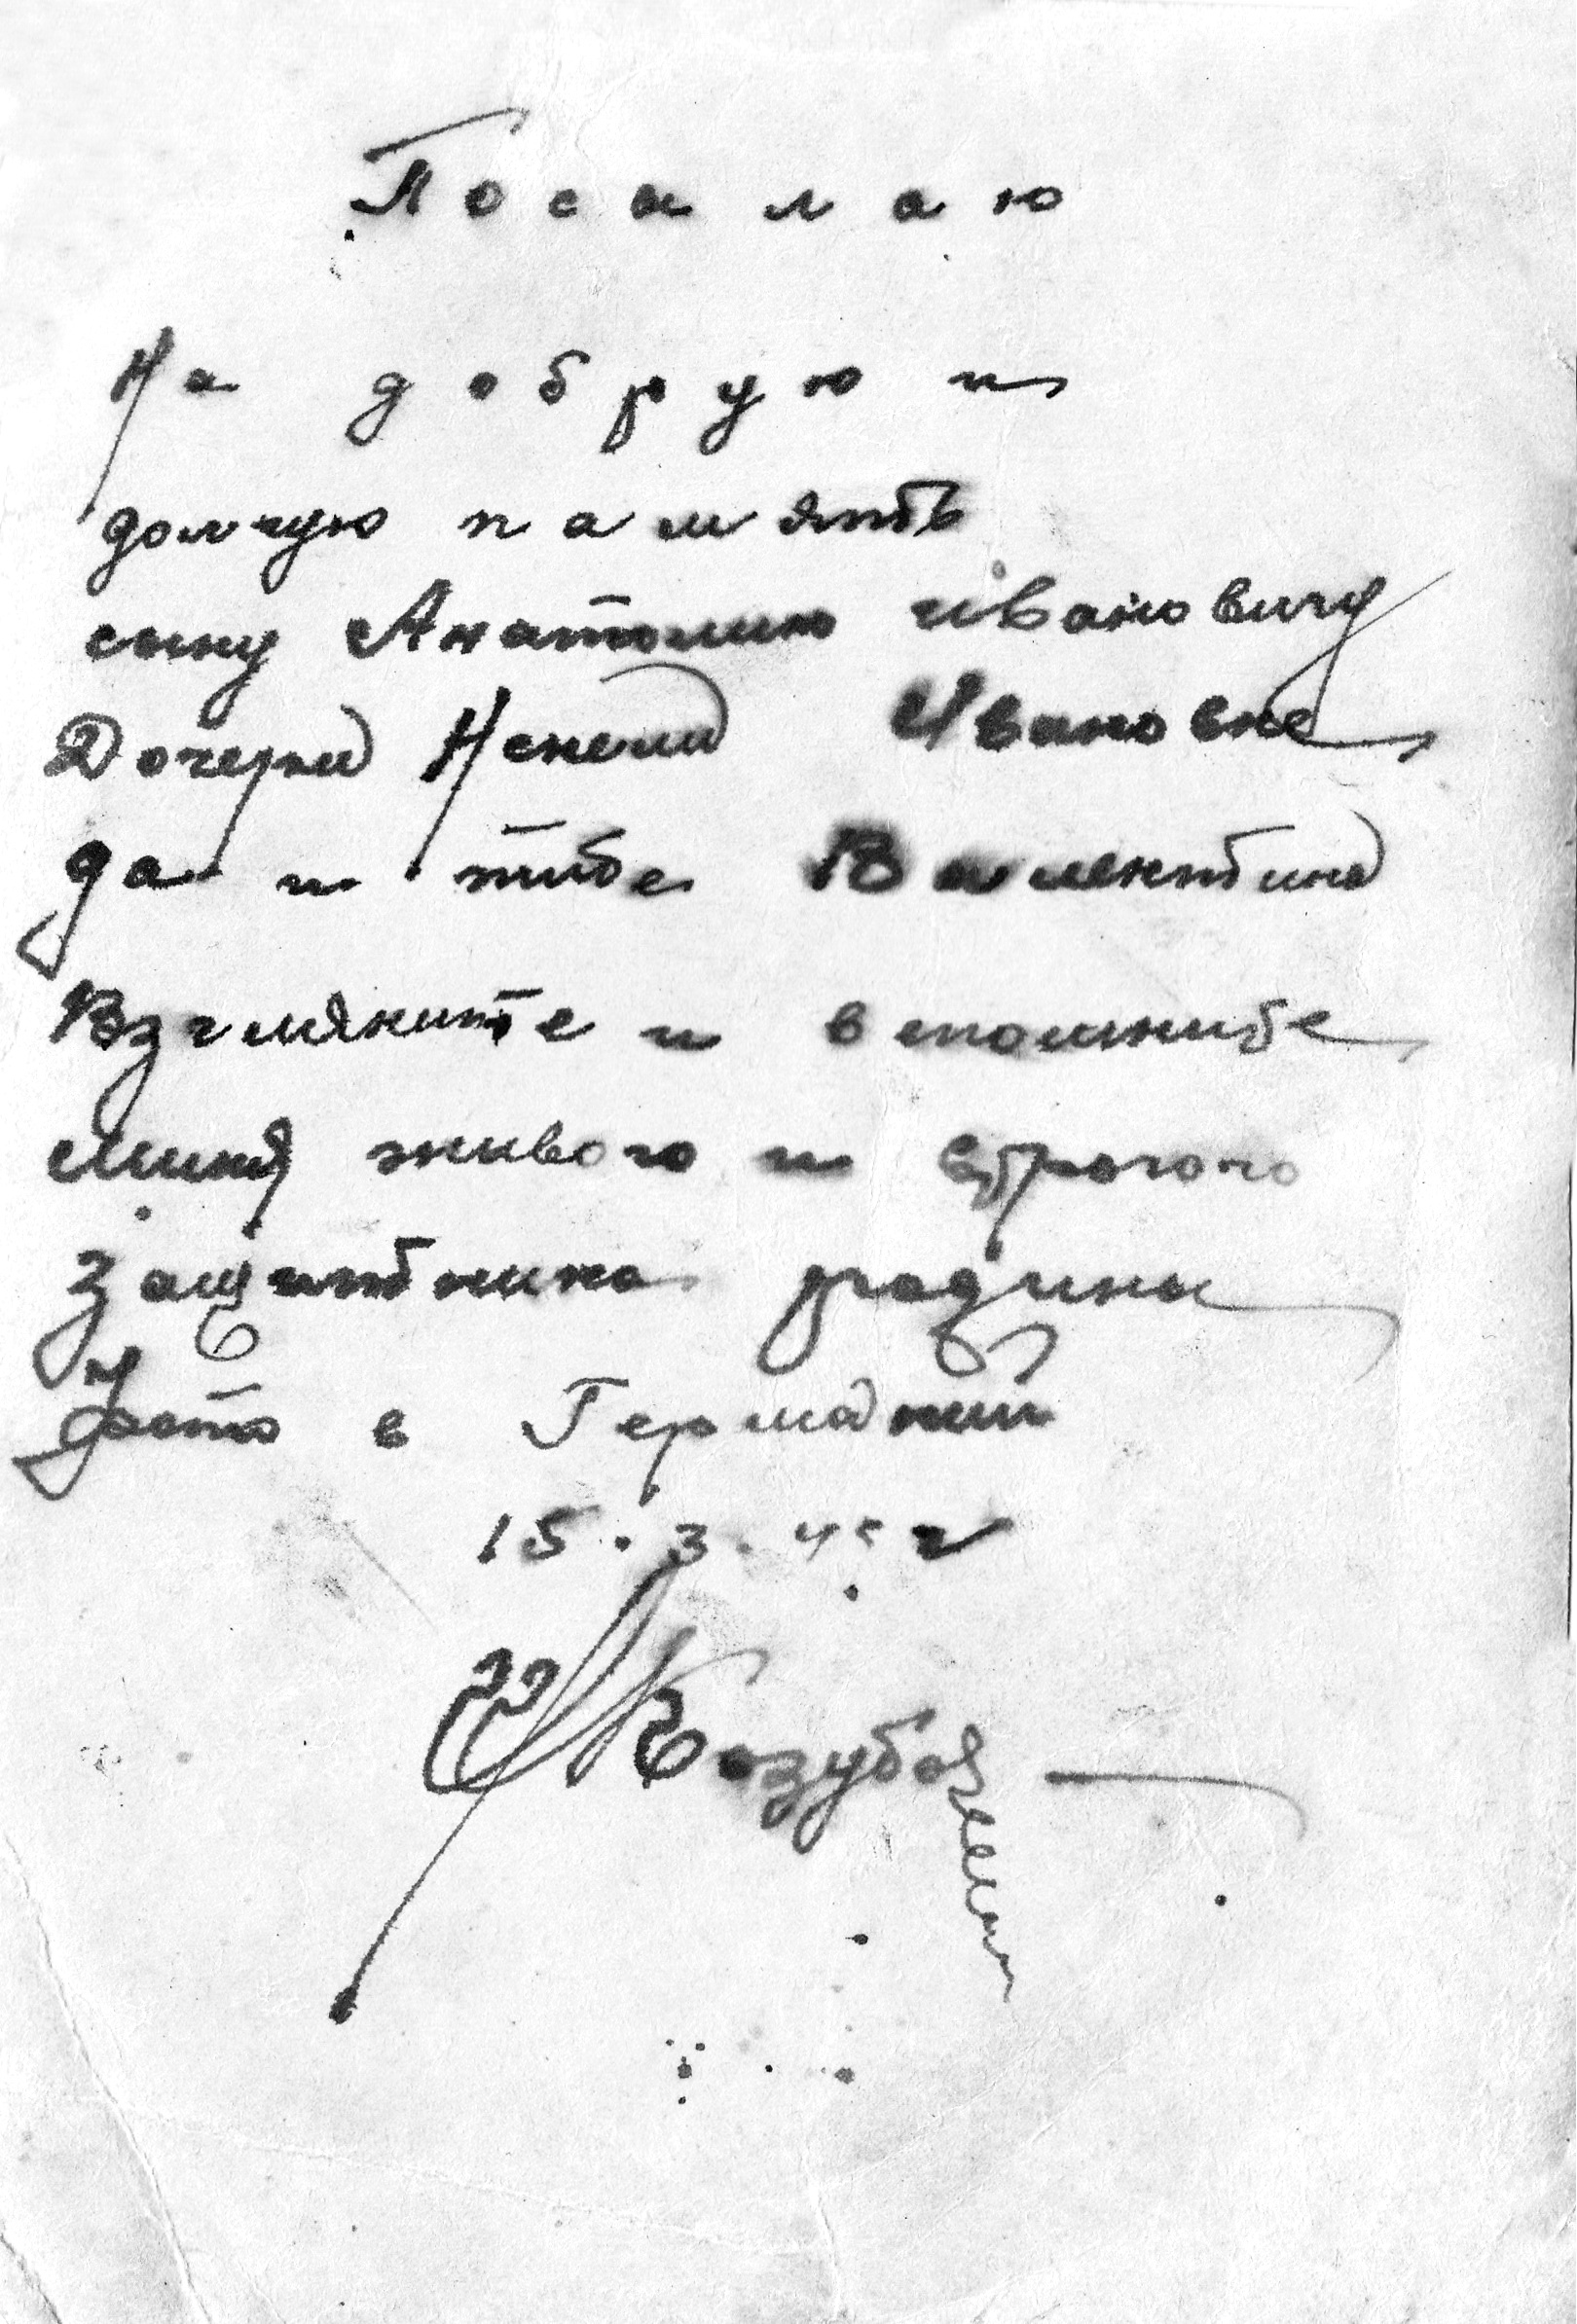 Посылаю
На добрую и
долгую память
сыну Анатолию Ивановичу
Дочери Ивановне
да и тибе Валентина
Взгляните и вспомните
миня живого и строгого
Защитника родины
фото в Германии
15.3.45 г
Козуб